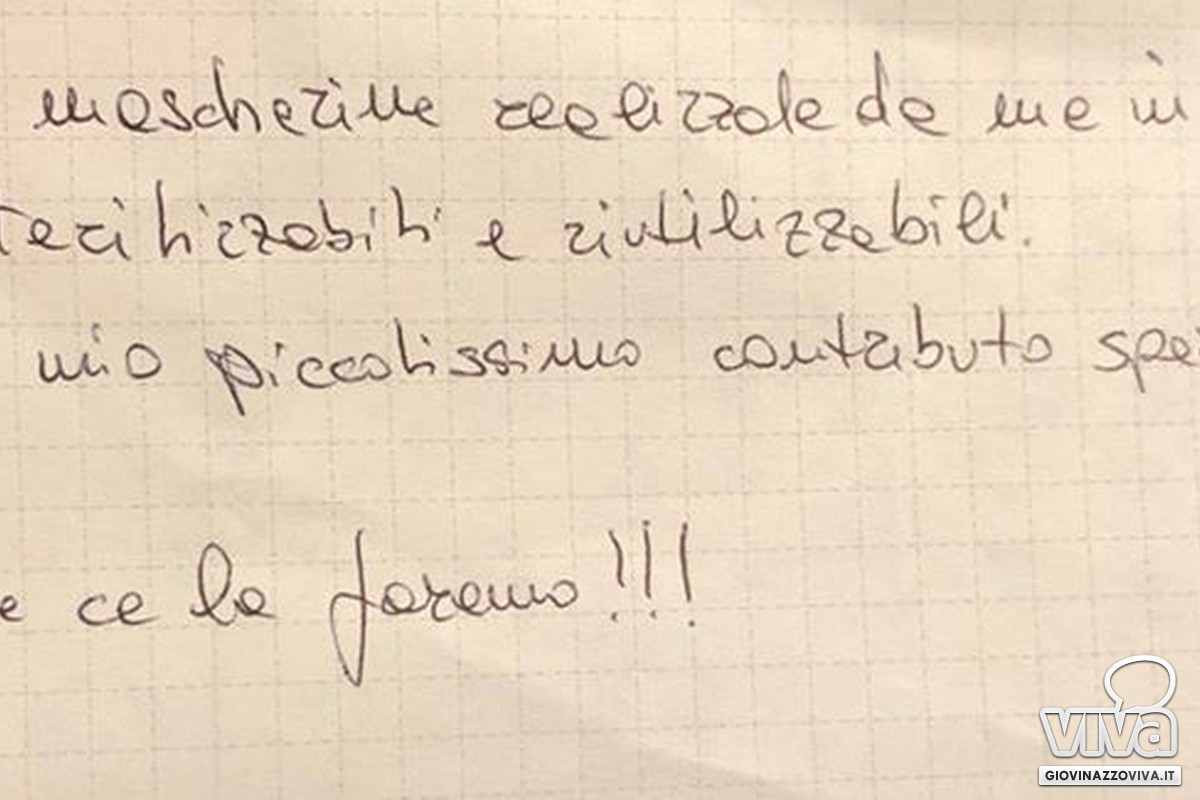 mascherine realizzate da me in
terilizzabili e riutilizzabili.
mio piccolissimo contributo spe
e ce la faremo!!!
viva
GIOVINAZZOVIVA.IT